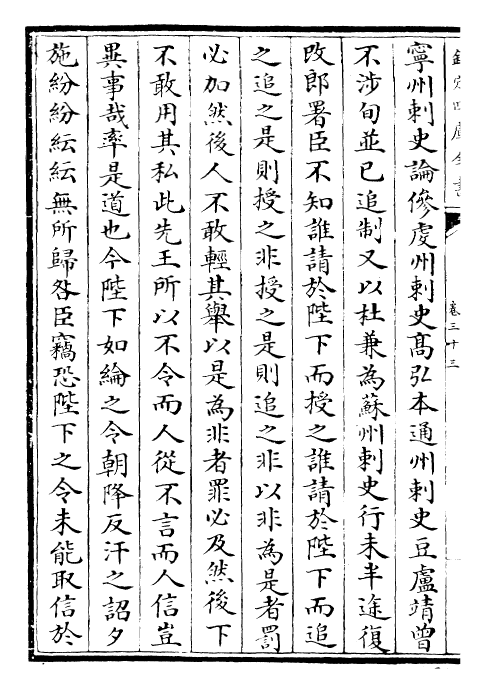 欽定四庫全書
卷三十三
寧州刺史論傪䖍州刺史髙弘本通州刺史豆盧靖曾
不涉旬並已追制又以杜兼為蘇州刺史行未半途復
改郎署臣不知誰請於陛下而授之誰請於陛下而追
之追之是則授之非授之是則追之非以非為是者罰
必加然後人不敢輕其舉以是為非者罪必及然後下
不敢用其私此先王所以不令而人從不言而人信豈
異事哉率是道也今陛下如綸之令朝降反汗之詔夕
施紛紛紜紜無所歸咎臣竊恐陛下之令未能取信於